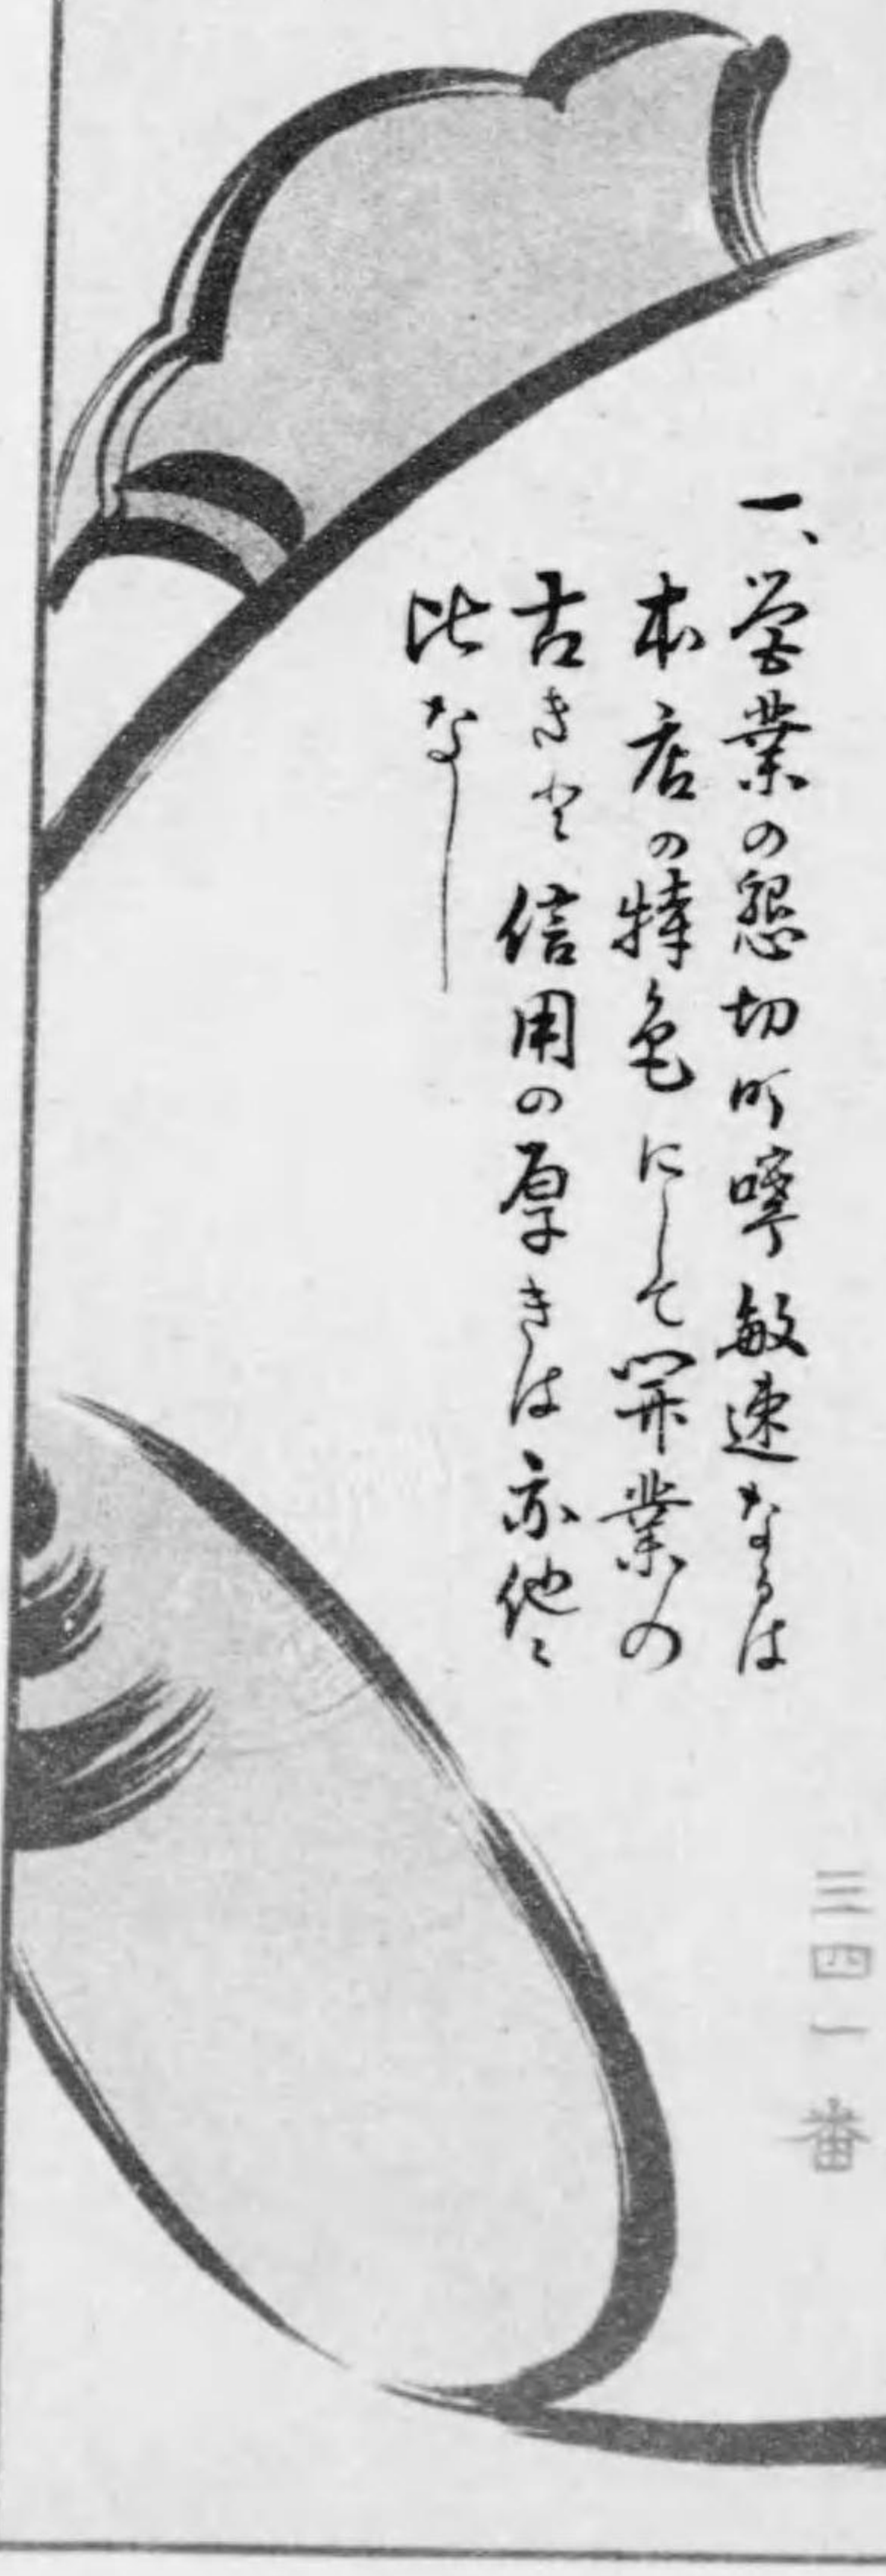 三四一番
一、営業の懇切町嚀敏速なるは
本店の特色にして開業の
古きと信用の厚きは亦他に
比なし